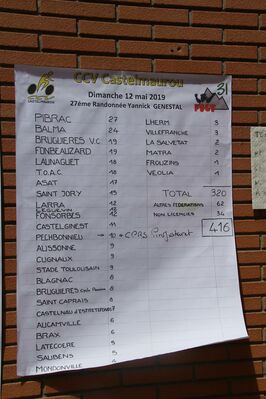 CCV Castelmaurou
Dimanche 12 mai 2019
27ème Randonnée Yannick GENESTAL
31
PIBRAC 27
BALMA 24
BRUGUIERES V.C 19
FONBEAUZARD 19
LAUNAGUET 18
T.O.A.C 18
ASAT 17
SAINT JORY 15
LARRA 12
LEGUEVIN 12
FONSORBES 12
CASTELGINEST 11
PECHBONNIEU → 10 + CPRS
AUSSONNE 9
CUGNAUX 9
STADE TOULOUSAIN 9
BLAGNAC 8
BRUGUIERES 8
SAINT CAPRAIS 8
CASTELNAU D'ESTRETEFONDS 7
AUCAMVILLE 6
BRAX 6
LATECOERE 5
SAUBENS 5
MONDONVILLE 4
LHERM 3
VILLEFRANCHE 3
LA SALVETAT 2
MATRA 2
FROUZINS 1
VEOLIA 1
TOTAL 320
AUTRES FEDERATIONS 62
NON LICENCIES 34
416